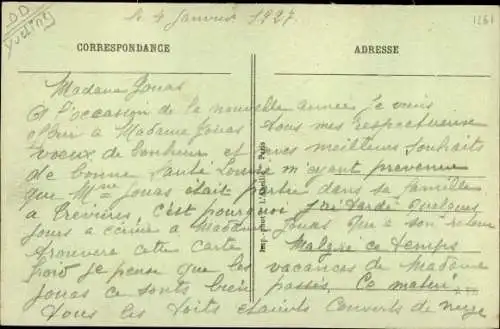 DD
Yvelines
1261
le 4 Janvier 1927
CORRESPONDANCE
ADRESSE
Madame Jouas
A l'occasion de la nouvelle année je viens
offrir à Madame Jouas tous mes respectueux
voeux de bonheur et mes meilleurs souhaits
de bonne santé Louise m'ayant prévenue
que Mme Jouas était partie dans sa famille
a Trévières, c'est pourquoi j'ai tardé quelques
jours a écrire a Madame Jouas qui a son retour
trouvera cette carte Malgré ce temps
froid je pense que les vacances de Madame
Jouas ce sont bien passés. Ce matin
tous les toits étaient couverts de neige
Imp. phot. Paris